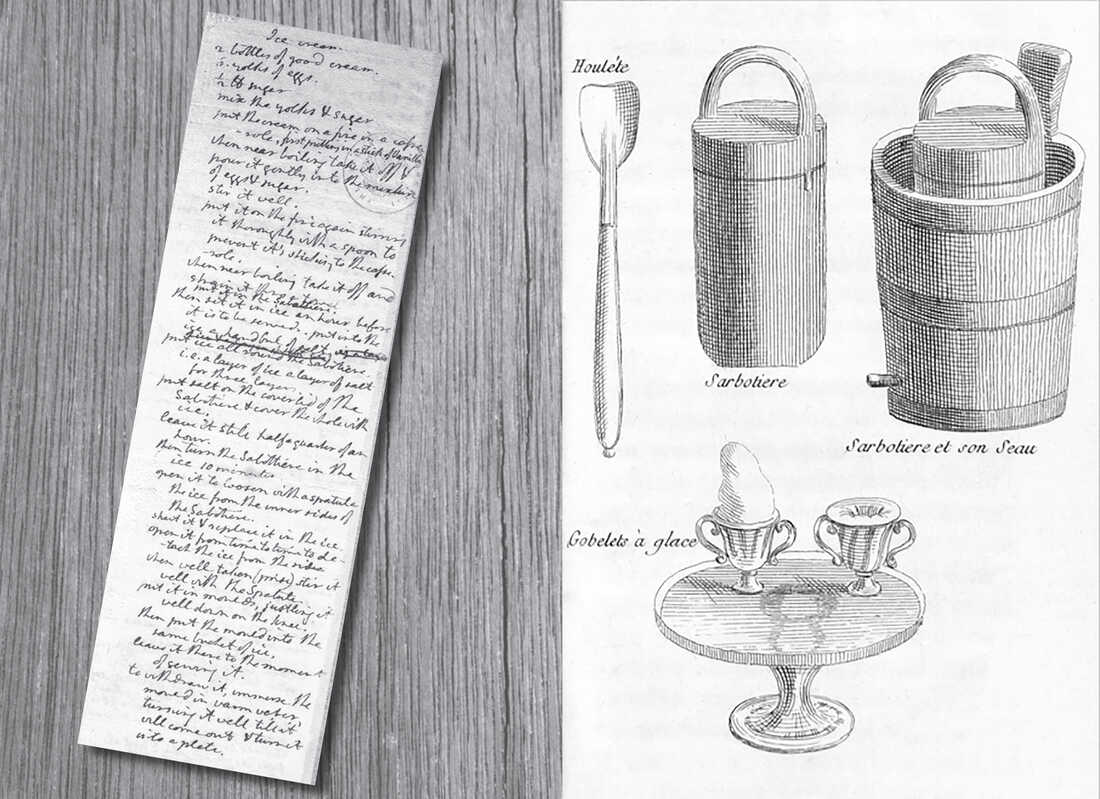 Ice cream.
2 bottles of good cream.
6. yolks of eggs.
½ ℔ sugar
mix the yolks & sugar
put the cream on a fire in a casse-
-role, first putting in a stick of Vanilla.
when near boiling take it off &
pour it gently into the mixture
of eggs & sugar.
stir it well.
put it on the fire again stirring
it thoroughly with a spoon to
prevent it's sticking to the casse-
role.
when near boiling take it off and
strain it thro' a towel.
put it in the Sabottiere.
then set it in ice an hour before
it is to be served. put into the
ice a handful of salt.
put ice all round the Sabottiere.
i.e. a layer of ice a layer of salt
for three layers.
put salt on the coverlid of the
Sabotiere & cover the whole with
ice.
leave it still half a quarter of an
hour.
then turn the Sabottiere in the
ice 10 minutes.
open it to loosen with a spatula
the ice from the inner sides of
the Sabotiere.
shut it & replace it in the ice
open it from time to time to de-
tach the ice from the sides
when well taken (prise) stir it
well with the Spatula.
put it in moulds, justling it
well down on the knee.
then put the mould into the
same bucket of ice.
leave it there to the moment
of serving it.
to withdraw it, immerse the
mould in warm water,
turning it well till it
will come out & turn it
into a plate.
Houléte
Sarbotiere
Sarbotiere et son Seau
Gobelets à glace